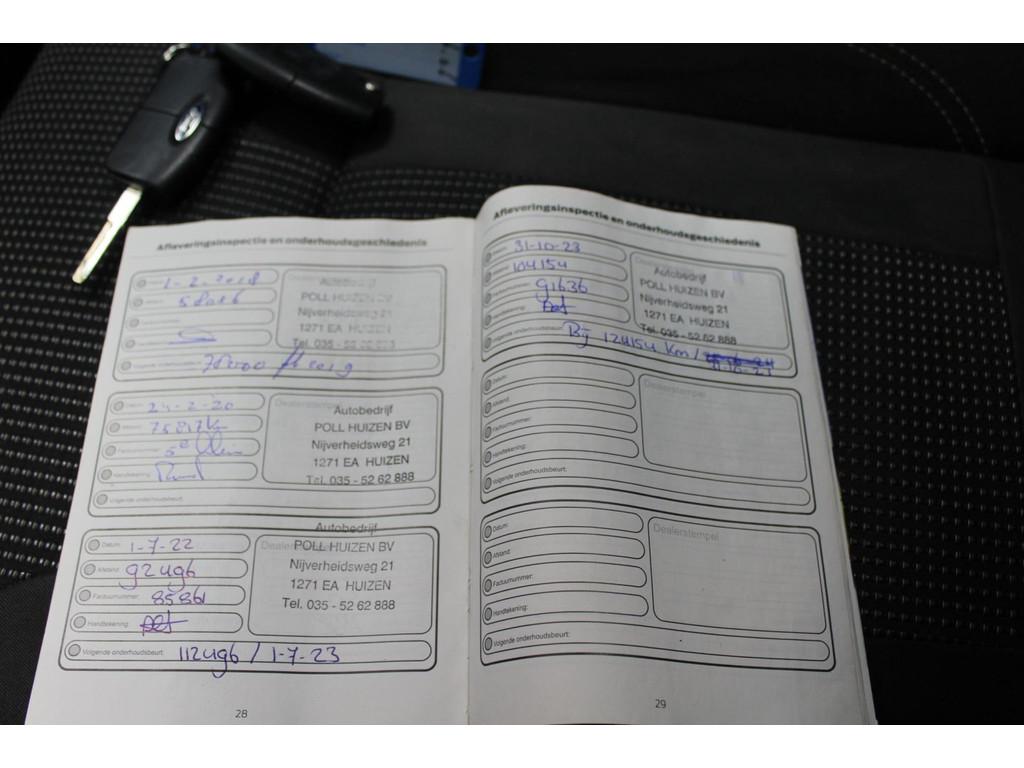 Afleveringsinspectie en onderhoudsgeschiedenis
Datum: 1-2-2018
58016
Autobedrijf
POLL HUIZEN BV
Nijverheidsweg 21
1271 EA HUIZEN
Tel. 035 - 52 62 888
Datum: 24-2-20
Dealerstempel
Autobedrijf
POLL HUIZEN BV
Nijverheidsweg 21
1271 EA HUIZEN
Tel. 035 - 52 62 888
Handtekening:
Volgende onderhoudsbeurt:
Datum: 1-7-22
Afstand: 92496
Factuurnummer: 85861
Handtekening:
Autobedrijf
POLL HUIZEN BV
Nijverheidsweg 21
1271 EA HUIZEN
Tel. 035 - 52 62 888
Volgende onderhoudsbeurt: 112496 / 1-7-23
28
Afleveringsinspectie en onderhoudsgeschiedenis
Datum: 31-10-23
Afstand: 104154
Factuurnummer: 91636
Handtekening:
Autobedrijf
POLL HUIZEN BV
Nijverheidsweg 21
1271 EA HUIZEN
Tel. 035 - 52 62 888
Volgende onderhoudsbeurt: Bij 124154 Km /
Datum:
Afstand:
Factuurnummer:
Handtekening:
Dealerstempel
Volgende onderhoudsbeurt:
Datum:
Afstand:
Factuurnummer:
Handtekening:
Dealerstempel
Volgende onderhoudsbeurt:
29